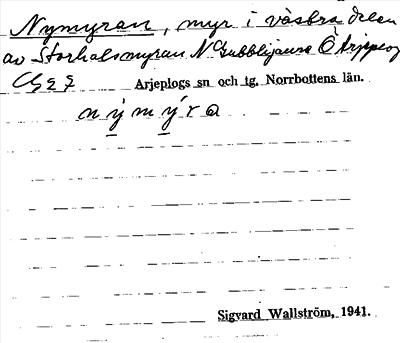 Nymyran, myr i västra delen
av Storholsmyran N Gubblijaure Ö Arjeplog
Arjeplogs sn och tg, Norrbottens län.
nýmýra
Sigvard Wallström, 1941.